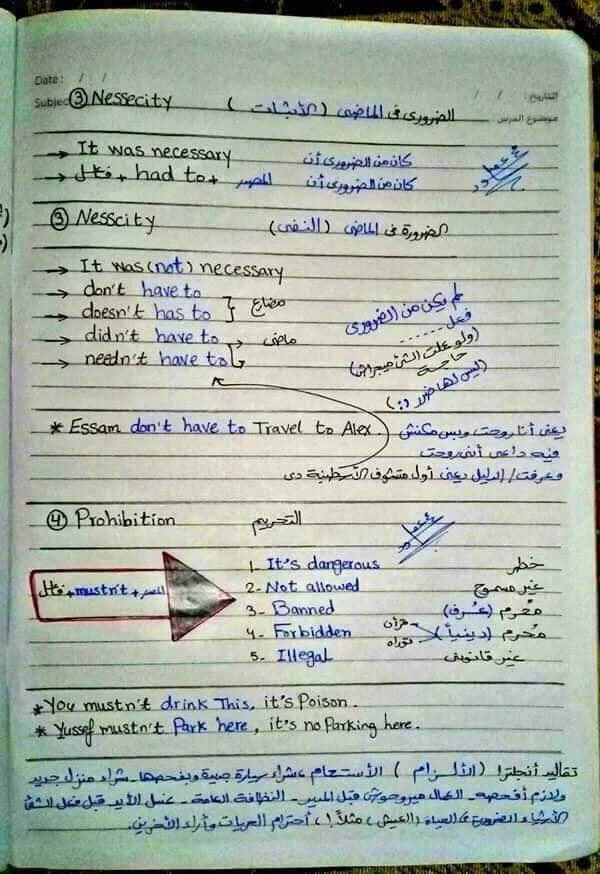 Date : / / التاريخ : / /
Subject موضوع الدرس :
③ Nessecity الضرورى فى الماضى (الأثبات)
→ It was necessary كان من الضرورى أن
→ فاعل + had to + المصدر كان من الضرورى أن
③ Nesscity الضرورة فى الماضى (النفى)
→ It was (not) necessary
→ don't have to
→ doesn't has to } مضارع
→ didn't have to → ماضى
→ needn't have to
لم يكن من الضرورى
فعل ------
(ولو عملت الشئ ميجراش
حاجة
(ليس لها ضرر :)
* Essam don't have to Travel to Alex. يعنى أنا روحت وبس مكنش
فيه داعى أنى روحت
وعرفت/ الدليل يعنى أول متشوف الأسطمبة دى
④ Prohibition التحريم
فاعل + mustn't + المصدر
1- It's dangerous خطر
2- Not allowed غير مسموح
3- Banned مُحرم (عُرف)
4- Forbidden مُحرم (دينياً) قرآن توراه
5- Illegal غير قانونى
* You mustn't drink This, it's Poison.
* Yussef mustn't Park here, it's no Parking here.
تقاليد أنجلترا (الألـزام) الأستحمام عـ شراء سيارة جديدة وبفحصها - شراء منزل جديد
ولازم أفحصه - العمال ميروحوش قبل المدير - النظافة العامة - غسل الأيد قبل فعل الشئ
الأشياء الضرورة فى الحياة (العيش) مثلاً !، أحترام الحريات وأراء الأخرين.